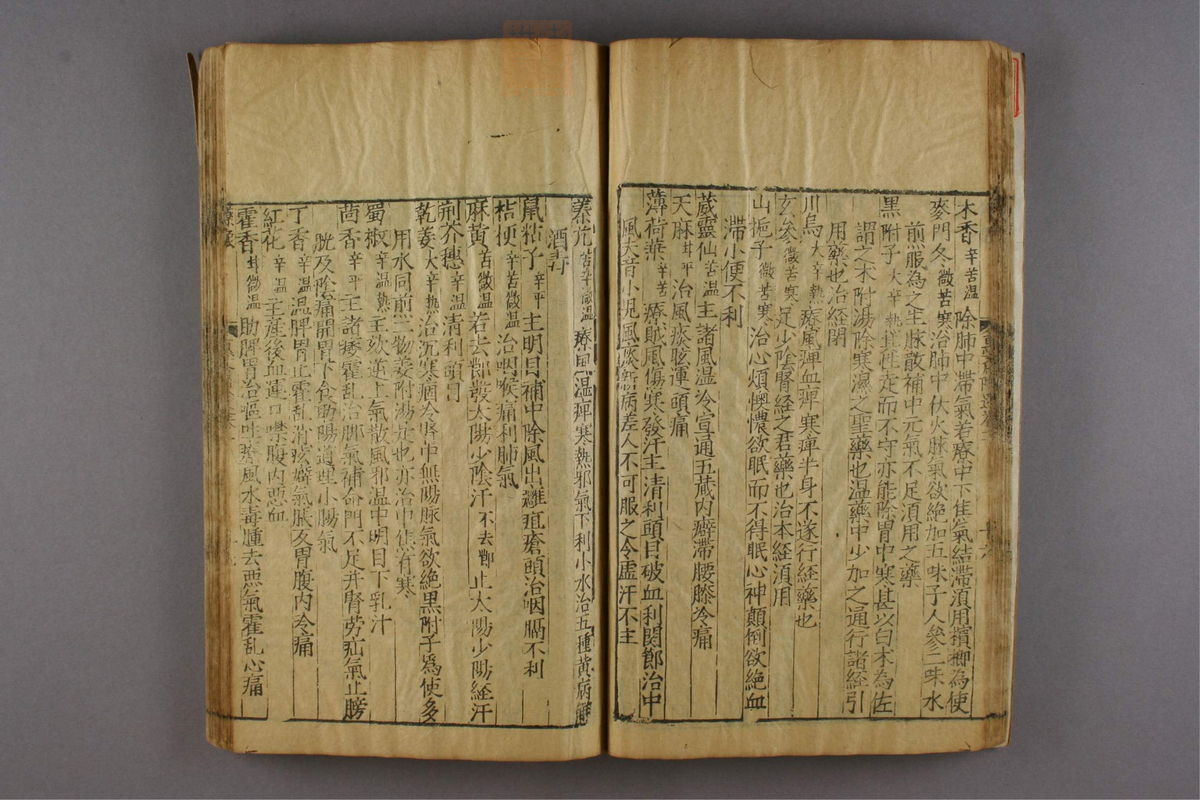 木香辛苦温除肺中滯氣若療中下焦氣結滯須用檳榔為使
麥門冬微苦寒治肺中伏火脉氣欲絶加五味子人參二味水
煎服為之生脉散補中元氣不足須用之藥
黑附子大辛熱其性走而不守亦能除胃中寒甚以白术為佐
謂之术附湯除寒濕之聖藥也温藥中少加之通行諸經引
用藥也治經閉
川烏大辛熱療風痺血痺寒痺半身不遂行經藥也
玄參微苦寒足少陰腎經之君藥也治本經須用
山梔子微苦寒治心煩懊憹欲眠而不得眠心神顛倒欲絶血
滯小便不利
葳靈仙苦温主諸風温冷宣通五蔵内癖滯腰膝冷痛
天麻苦平治風痰眩運頭痛
薄荷葉辛苦療賊風傷寒發汗主清利頭目破血利関節治中
風失音小児風痰新病差人不可服之令虚汗不主
秦艽苦辛微温療風温痺寒熱邪氣下利小水治五種黄病解
酒毒
鼠粘子辛平主明目補中除風出癰疽瘡頭治咽膈不利
桔梗辛苦微温治咽喉痛利肺氣
麻黄苦微温若去節發太陽少陰汗不去節止太陽少陽經汗
荊芥穗辛温清利頭目
乾姜大辛熱治沉寒痼冷腎中無陽脉氣欲絶黑附子為使多
用水同煎二物姜附湯是也亦治中焦有寒
蜀椒辛温熱主欬逆上氣散風邪温中明目下乳汁
茴香辛平主諸瘻霍乱治脚氣補命門不足并腎勞疝氣止膀
胱及陰痛開胃下食助陽道理小腸氣
丁香辛温温脾胃止霍乱消痃癖氣脹及胃腹内冷痛
紅花辛温主産後血運口噤腹内悪血
霍香甘微温助脾胃治嘔吐療風水毒腫去悪氣霍乱心痛